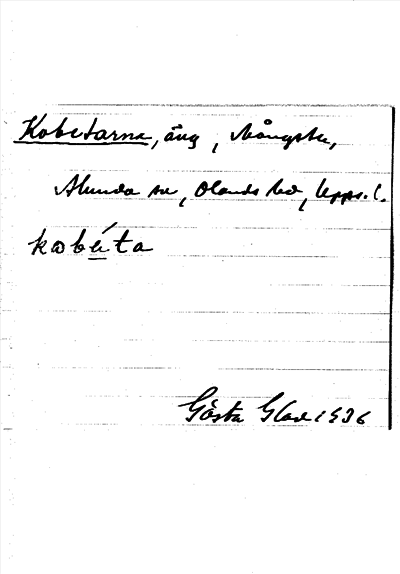 Kobetarna, äng, Mångsbo,
Alunda sn, Olands hd, Upps. l.
kobéta
Gösta Glad 1936